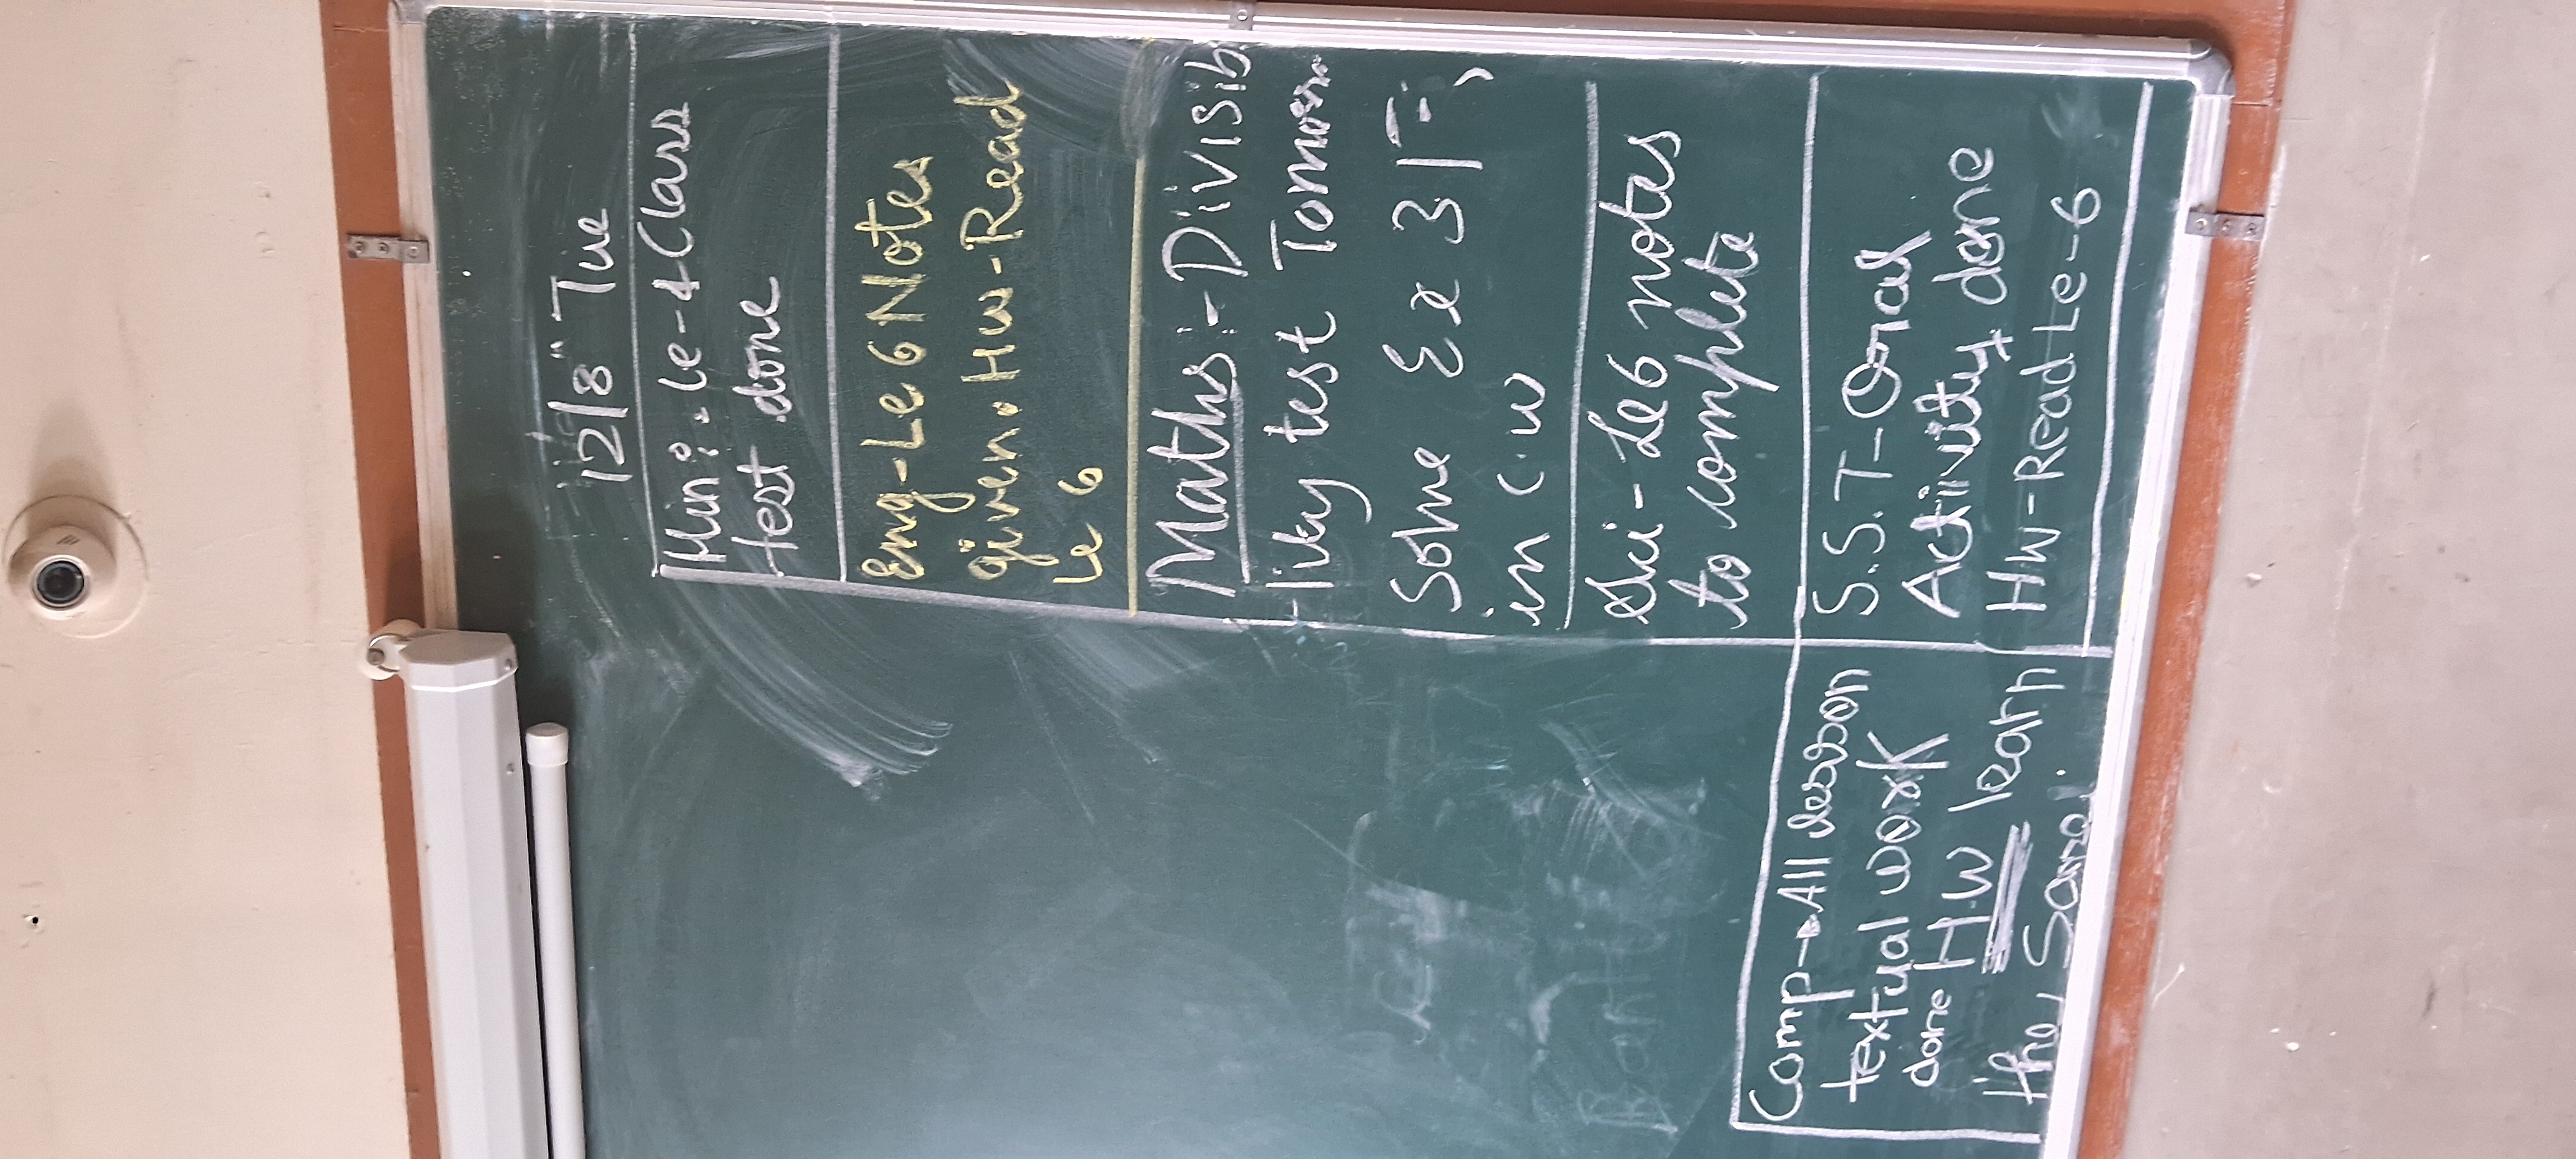 12/8 Tue
Hin:- Le-4 Class
test done
Eng-Le 6 Notes
given. Hw-Read
Le 6
Maths:- Divisib
-lity test Tomorr
Solve Ex 3 F,
in C.W
Sci - Le 6 notes
to complete
S.S.T- Oral
Activity done
HW-Read Le-6
Comp→All lesson
textual work
done H.W learn
the Same.